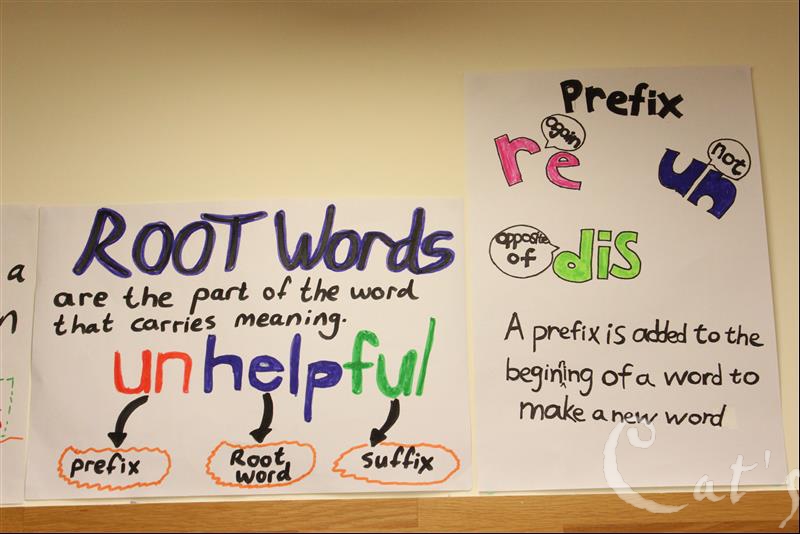 a
n
ROOT Words
are the part of the word
that carries meaning.
unhelpful
prefix
Root
word
suffix
Prefix
again
re
not
un
opposite
of
dis
A prefix is added to the
begining of a word to
make a new word
Cat's